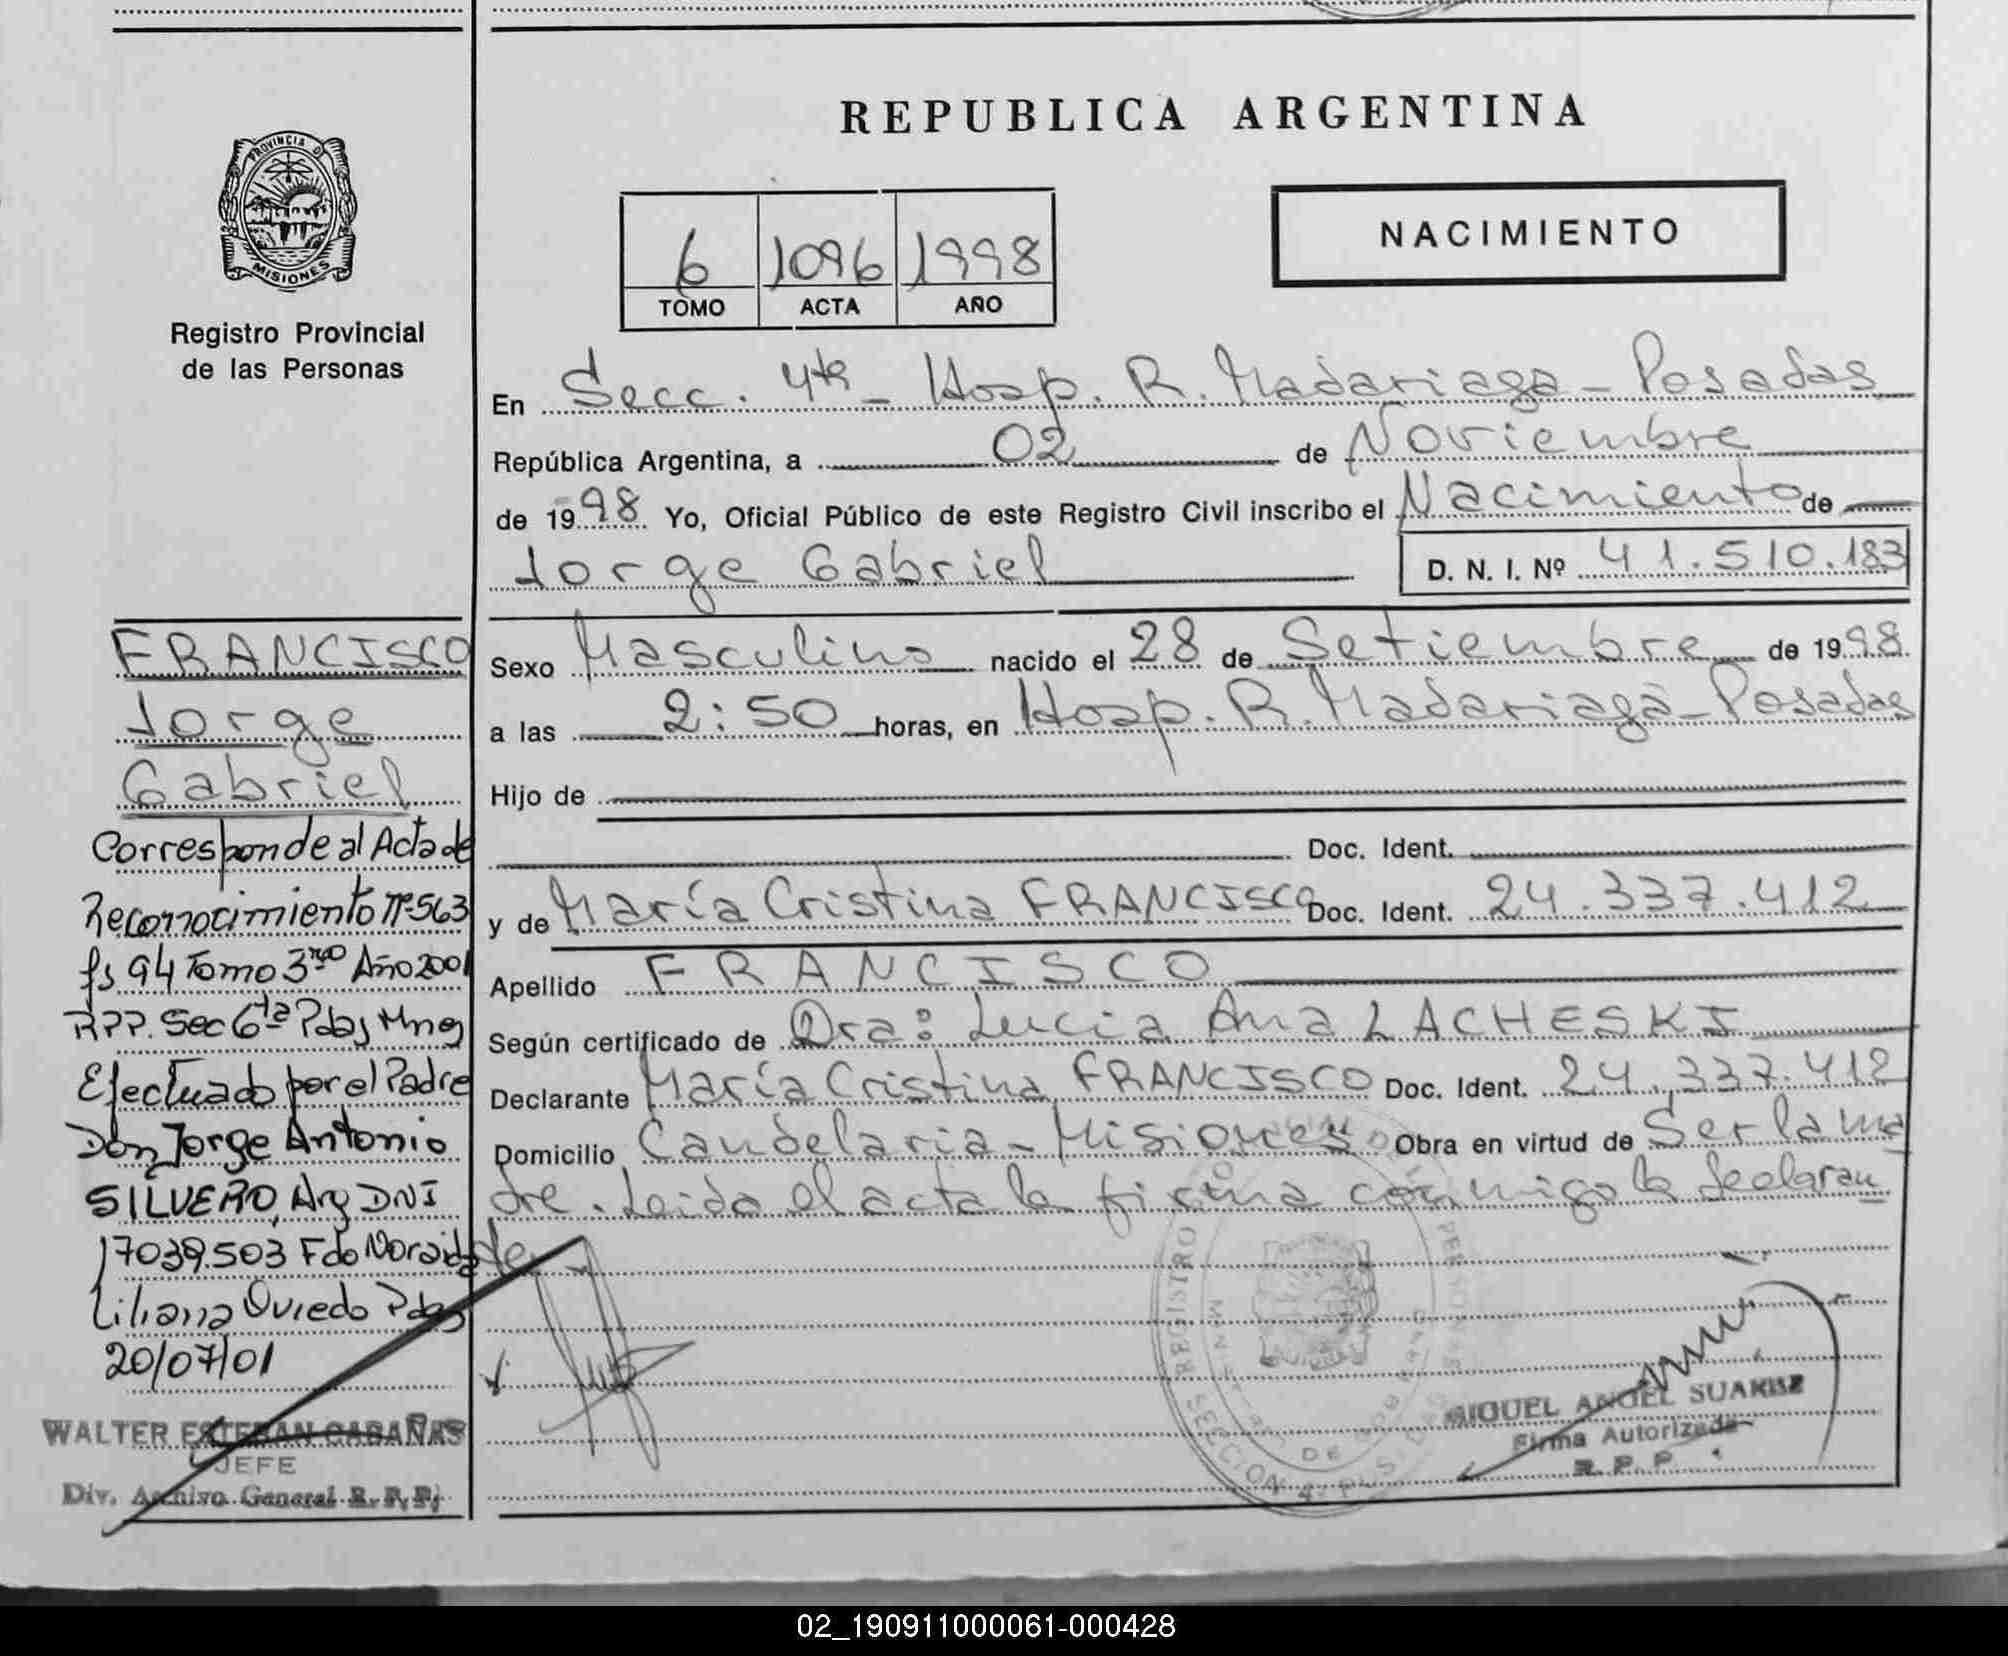 REPUBLICA ARGENTINA
PROVINCIA D
MISIONES
Registro Provincial
de las Personas
NACIMIENTO
6 1096 1998
TOMO ACTA AÑO
En Secc. 4ta - Hosp. R. Madariaga - Posadas
República Argentina, a 02 de Noviembre
de 1998 Yo, Oficial Público de este Registro Civil inscribo el Nacimiento de
Jorge Gabriel D. N. I. Nº 41.510.183
Sexo Masculino nacido el 28 de Setiembre de 1998
a las 2:50 horas, en Hosp. R. Madariaga - Posadas
Hijo de
Doc. Ident.
y de María Cristina FRANCISCO Doc. Ident. 24.337.412
Apellido FRANCISCO
Según certificado de Dra: Lucia Ana LACHESKI
Declarante María Cristina FRANCISCO Doc. Ident. 24.337.412
Domicilio Candelaria - Misiones Obra en virtud de Ser la ma
dre. Leida el acta la firma conmigo la declaran
te
FRANCISCO
Jorge
Gabriel
Corresponde al Acta de
Reconocimiento Nº 563
fs 94 Tomo 3ro Año 2001
RPP. Sec 6ta Pdas Mnes
Efectuado por el Padre
Don Jorge Antonio
SILVERO, Arg DNI
17039.503 Fdo Noraida
Liliana Oviedo Pdas
20/07/01
WALTER ESTEBAN CABAÑAS
JEFE
Div. Archivo General R.P.P.
REGISTRO
SECCION 4
MIGUEL ANGEL SUAREZ
Firma Autorizada
R. P. P.
02_190911000061-000428